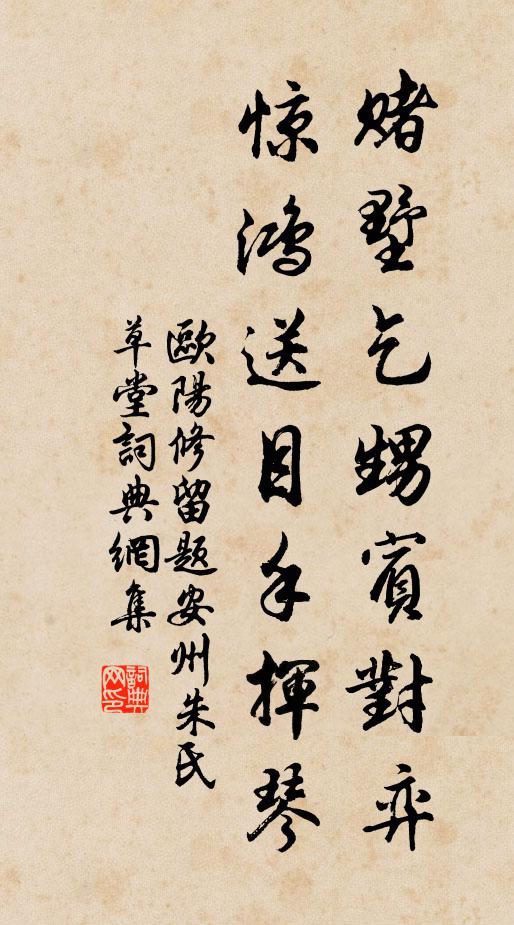 赌墅乞甥賓對弈
惊鸿送目手揮琴
歐陽修留題安州朱氏
草堂詞典網集
詞典
网印